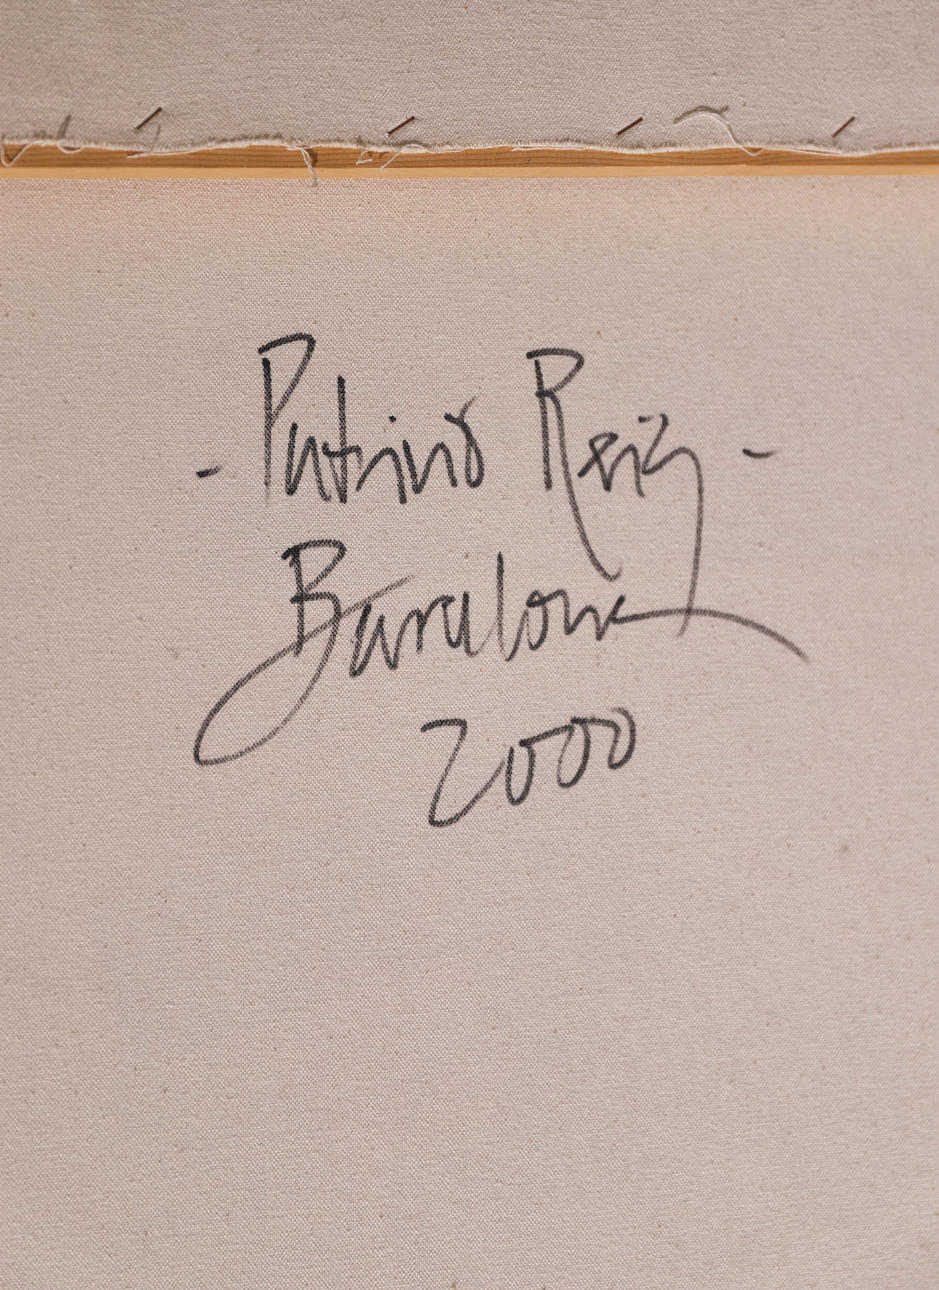 - Patricio Reig -
Barcelona
2000